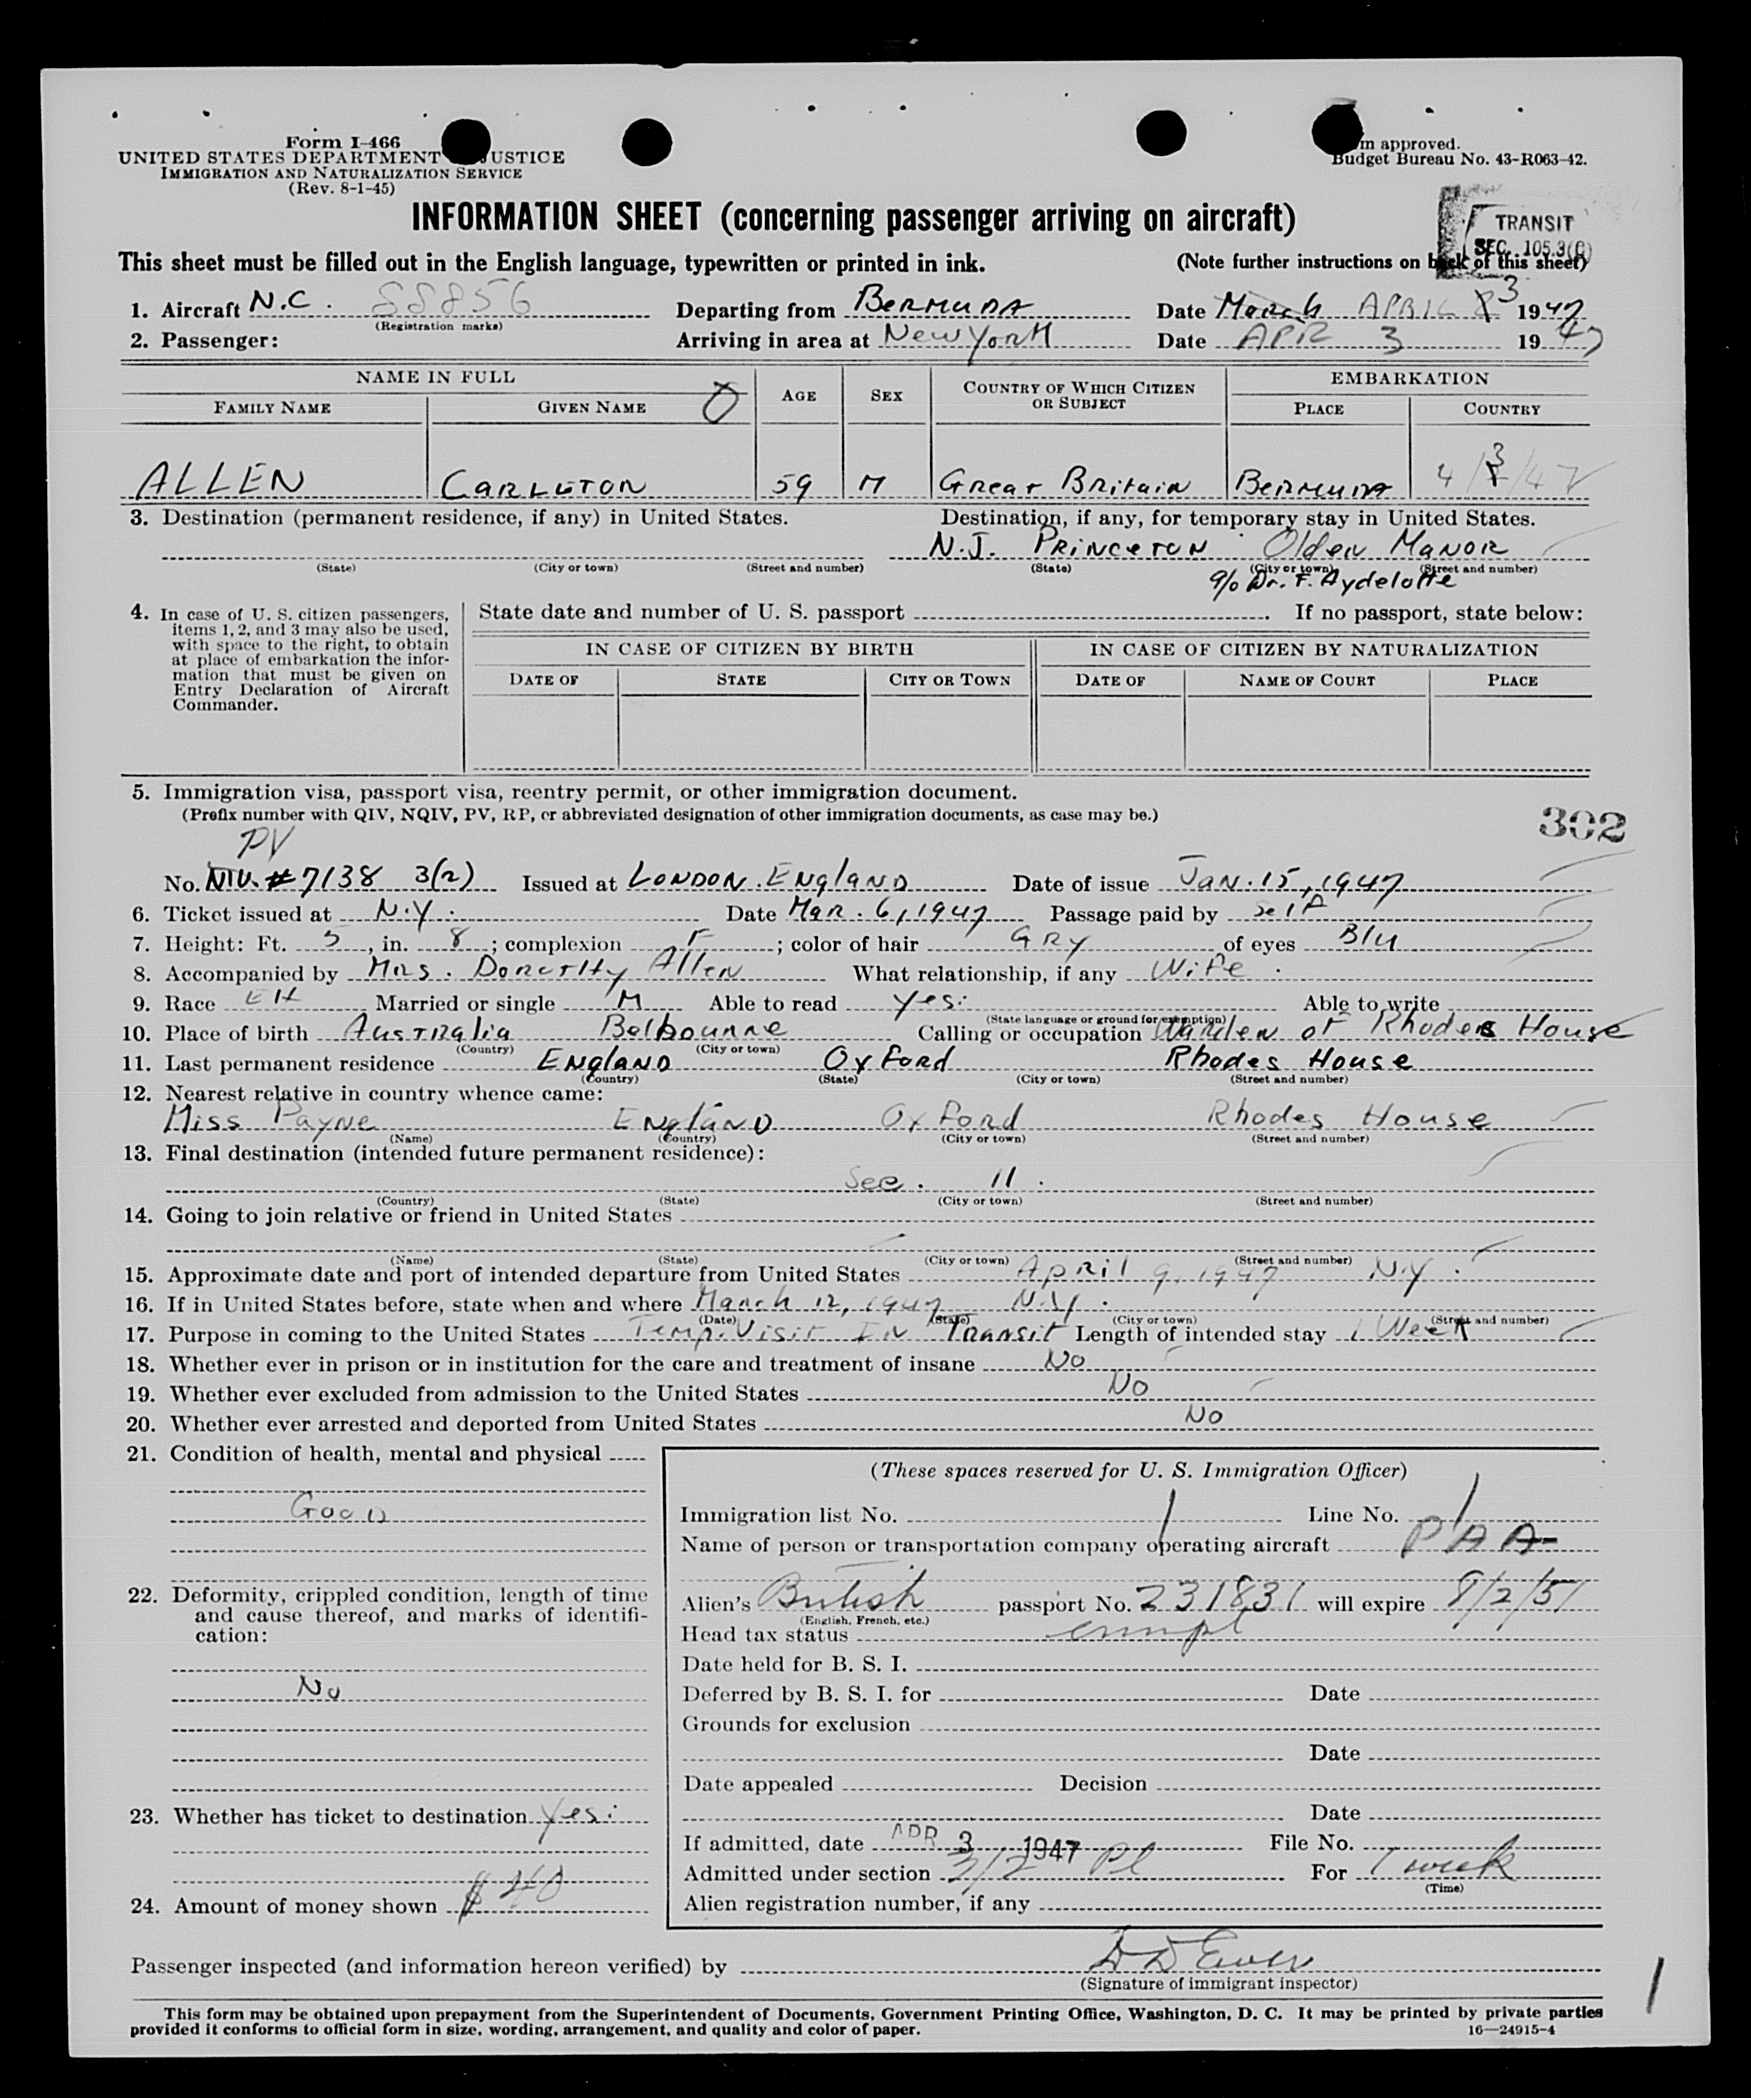 Form I-466
UNITED STATES DEPARTMENT JUSTICE
IMMIGRATION AND NATURALIZATION SERVICE
(Rev. 8-1-45)
m approved.
Budget Bureau No. 43-R063-42.
INFORMATION SHEET (concerning passenger arriving on aircraft)
TRANSIT
SEC. 105.3(
This sheet must be filled out in the English language, typewritten or printed in ink. (Note further instructions on back of this sheet)
1. Aircraft N.C. 88856 Departing from BERMUDA Date March APRIL 3 1947
(Registration marks)
2. Passenger: Arriving in area at New York Date APR 3 1947
NAME IN FULL AGE SEX COUNTRY OF WHICH CITIZEN OR SUBJECT EMBARKATION
FAMILY NAME GIVEN NAME PLACE COUNTRY
ALLEN CARLETON 59 M Great Britain BERMUDA 4/3/47
3. Destination (permanent residence, if any) in United States. Destination, if any, for temporary stay in United States.
N.J. PRINCETON Olden MANOR
(State) (City or town) (Street and number) (State) (City or town) (Street and number)
c/o Dr. F. Aydelotte
4. In case of U. S. citizen passengers, items 1, 2, and 3 may also be used, with space to the right, to obtain at place of embarkation the information that must be given on Entry Declaration of Aircraft Commander.
State date and number of U. S. passport . If no passport, state below:
IN CASE OF CITIZEN BY BIRTH IN CASE OF CITIZEN BY NATURALIZATION
DATE OF STATE CITY OR TOWN DATE OF NAME OF COURT PLACE
5. Immigration visa, passport visa, reentry permit, or other immigration document.
(Prefix number with QIV, NQIV, PV, RP, or abbreviated designation of other immigration documents, as case may be.)
302
PV
No. NIV. #7138 3(2) Issued at LONDON. ENGLAND Date of issue JAN. 15, 1947
6. Ticket issued at N.Y. Date Mar. 6, 1947 Passage paid by Self
7. Height: Ft. 5, in. 8; complexion F; color of hair GRY of eyes Blu
8. Accompanied by Mrs. Dorothy Allen What relationship, if any Wife.
9. Race Married or single M Able to read Yes. Able to write
(State language or ground for exemption)
10. Place of birth Australia Belbounne Calling or occupation Warden of Rhodes House
(Country) (City or town)
11. Last permanent residence ENGLAND Oxford Rhodes House
(Country) (State) (City or town) (Street and number)
12. Nearest relative in country whence came:
Miss Payne ENGLAND Oxford Rhodes House
(Name) (Country) (City or town) (Street and number)
13. Final destination (intended future permanent residence):
See. 11.
(Country) (State) (City or town) (Street and number)
14. Going to join relative or friend in United States
(Name) (State) (City or town) (Street and number)
15. Approximate date and port of intended departure from United States April 9, 1947 N.Y.
16. If in United States before, state when and where March 12, 1947 N.Y.
(Date) (State) (City or town) (Street and number)
17. Purpose in coming to the United States Temp. Visit In Transit Length of intended stay 1 Week
18. Whether ever in prison or in institution for the care and treatment of insane No
19. Whether ever excluded from admission to the United States No
20. Whether ever arrested and deported from United States No
21. Condition of health, mental and physical
Good
22. Deformity, crippled condition, length of time
and cause thereof, and marks of identifi-
cation:
No
23. Whether has ticket to destination Yes.
24. Amount of money shown $ 40
(These spaces reserved for U. S. Immigration Officer)
Immigration list No. 1 Line No. 1
Name of person or transportation company operating aircraft PAA
Alien's British passport No. 231831 will expire 8/2/51
(English, French, etc.)
Head tax status exmpt
Date held for B. S. I.
Deferred by B. S. I. for Date
Grounds for exclusion
Date
Date appealed Decision
Date
If admitted, date APR 3 1947 File No.
Admitted under section 3/2 Pl For 1 week
(Time)
Alien registration number, if any
Passenger inspected (and information hereon verified) by
(Signature of immigrant inspector)
1
This form may be obtained upon prepayment from the Superintendent of Documents, Government Printing Office, Washington, D. C. It may be printed by private parties
provided it conforms to official form in size, wording, arrangement, and quality and color of paper. 16—24915-4